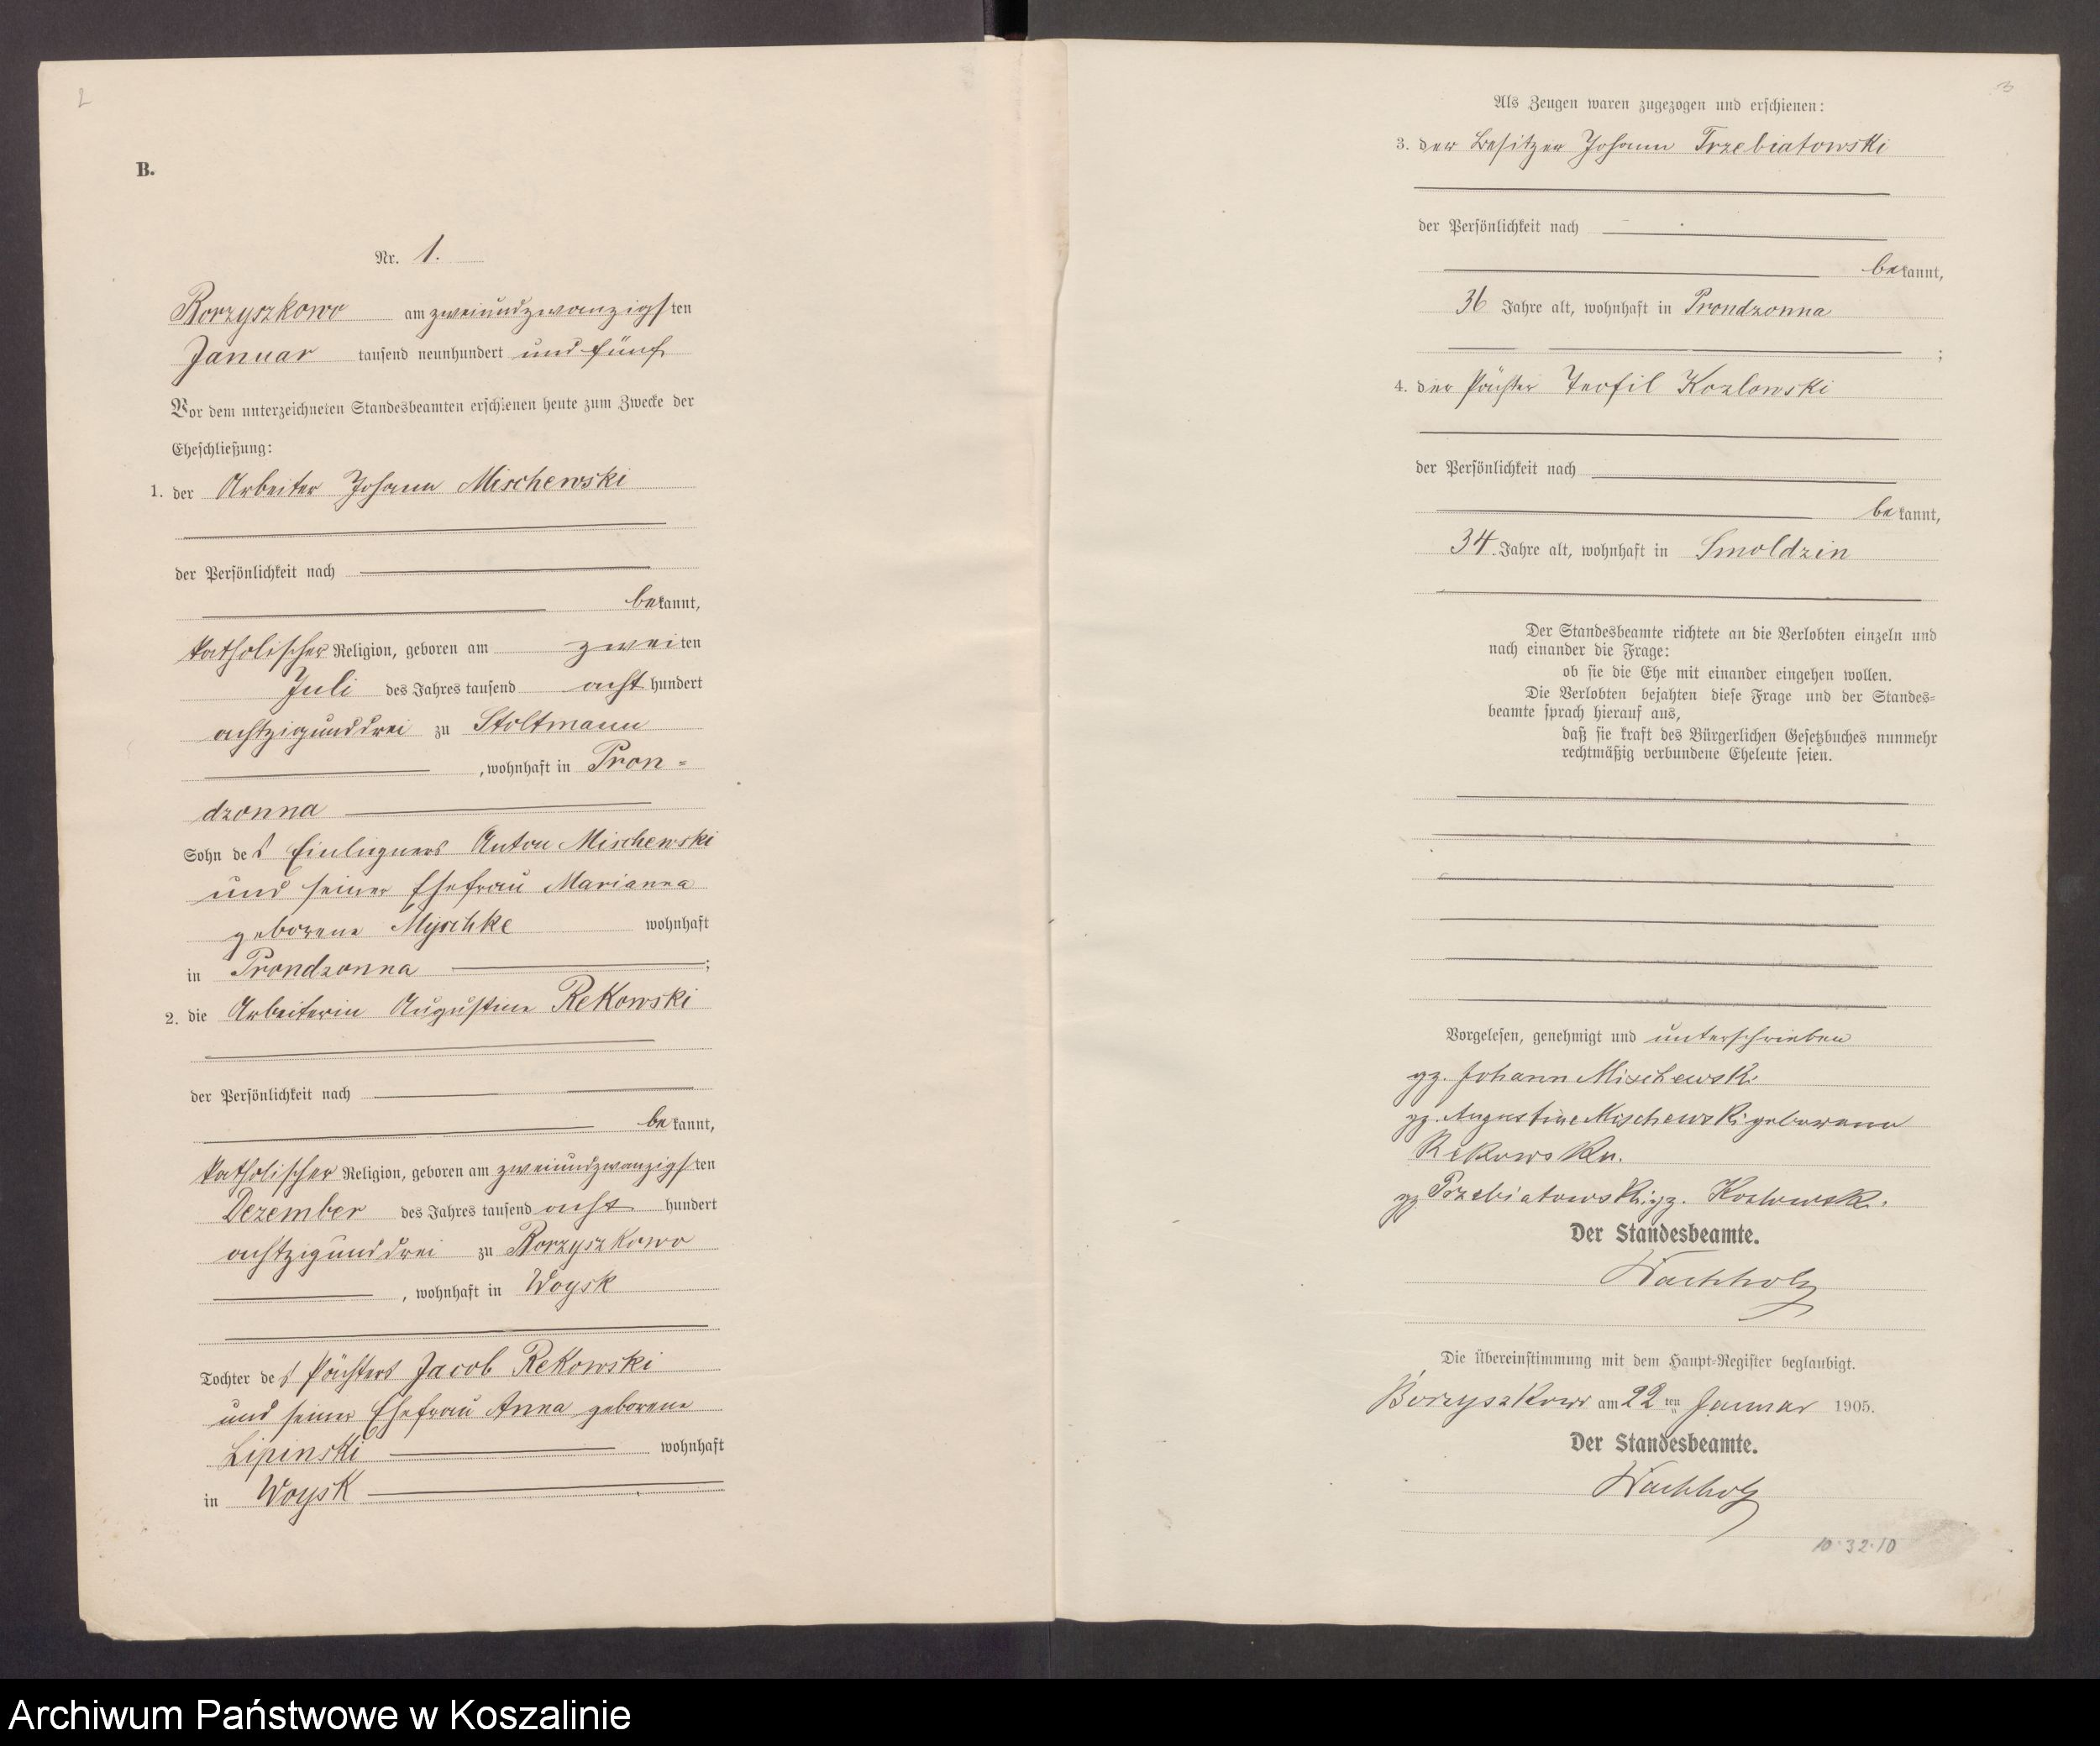 2
B.
Nr. 1.
Borzyszkowo am zweiundzwanzigsten
Januar tausend neunhundert und fünf
Vor dem unterzeichneten Standesbeamten erschienen heute zum Zwecke der
Eheschließung:
1. der Arbeiter Johann Mischewski
der Persönlichkeit nach
bekannt,
katholischer Religion, geboren am zweiten
Juli des Jahres tausend acht hundert
achtzigunddrei zu Stoltmann
, wohnhaft in Pron=
dzonna
Sohn des Einliegners Anton Mischewski
und seiner Ehefrau Marianna
geborene Myschke wohnhaft
in Prondzonna ;
2. die Arbeiterin Augustine Rekowski
der Persönlichkeit nach
bekannt,
katholischer Religion, geboren am zweiundzwanzigsten
Dezember des Jahres tausend acht hundert
achtzigunddrei zu Borzyszkowo
, wohnhaft in Woysk
Tochter des Pächters Jacob Rekowski
und seiner Ehefrau Anna geborene
Lipinski wohnhaft
in Woysk
3
Als Zeugen waren zugezogen und erschienen:
3. der Besitzer Johann Trzebiatowski
der Persönlichkeit nach
bekannt,
36 Jahre alt, wohnhaft in Prondzonna
;
4. der Pächter Teofil Kozlowski
der Persönlichkeit nach
bekannt,
34. Jahre alt, wohnhaft in Smoldzin
Der Standesbeamte richtete an die Verlobten einzeln und
nach einander die Frage:
ob sie die Ehe mit einander eingehen wollen.
Die Verlobten bejahten diese Frage und der Standes=
beamte sprach hierauf aus,
daß sie kraft des Bürgerlichen Gesetzbuches nunmehr
rechtmäßig verbundene Eheleute seien.
Vorgelesen, genehmigt und unterschrieben
gz. Johann Mischewski
gz. Augustine Mischewski geborene
Rekowski.
gz. Trzebiatowski gz. Kozlowski.
Der Standesbeamte.
Wachholz
Die Übereinstimmung mit dem Haupt-Register beglaubigt.
Borzyszkowo am 22 ten Januar 1905.
Der Standesbeamte.
Wachholz
10·32·10
Archiwum Państwowe w Koszalinie